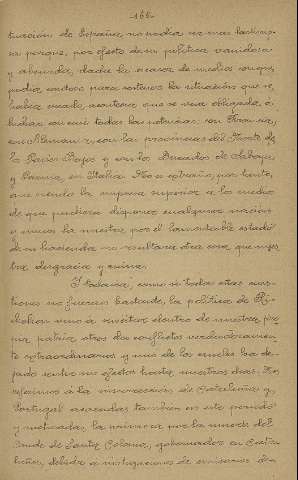 -168-
tuación de España, no podía ser mas lastimo-
sa porque, por efecto de su política vanidosa
y absurda, dada la escasez de medios con que
podía contar para sostener la situación que se
había creado, acontecía que se veía obligada á
luchar con casi todas las potencias, con Francia,
con Alemania, con las provincias del Norte de
los Paises Bajos y con los Ducados de Saboya
y Parma, en Italia. No es extraño, por tanto,
que siendo la empresa superior á los medios
de que pudiera disponer cualquiera nación
y mucho la nuestra por el lamentable estado
de su hacienda no resultara otra cosa que nues-
tra desgracia y ruina.
Y todavía, como si todas estas cues-
tiones no fueran bastante, la política de Ri-
chelieu vino á suscitar dentro de nuestra pro-
pia patria otros dos conflictos verdaderamen-
te extraordinarios y uno de los cuales ha de-
jado sentir sus efectos hasta nuestros dias. Me
referimos á la insurrección de Cataluña y
Portugal acaecidas tambien en este periodo
y motivadas, la primera por la muerte del
Conde de Santa Coloma, gobernador en Cata-
luña, debida a instigaciones de emisarios de